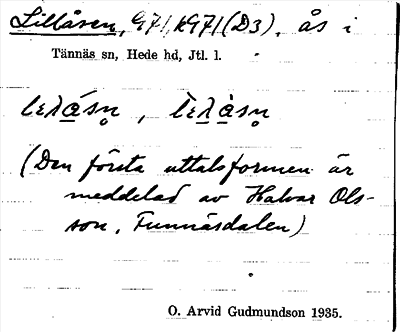 Lillåsen, 971, 1971 (D3), ås i
Tännäs sn, Hede hd, Jtl. l.
(Den första uttalsformen är
meddelad av Halvar Ols-
son, Funnäsdalen)
O. Arvid Gudmundson 1935.